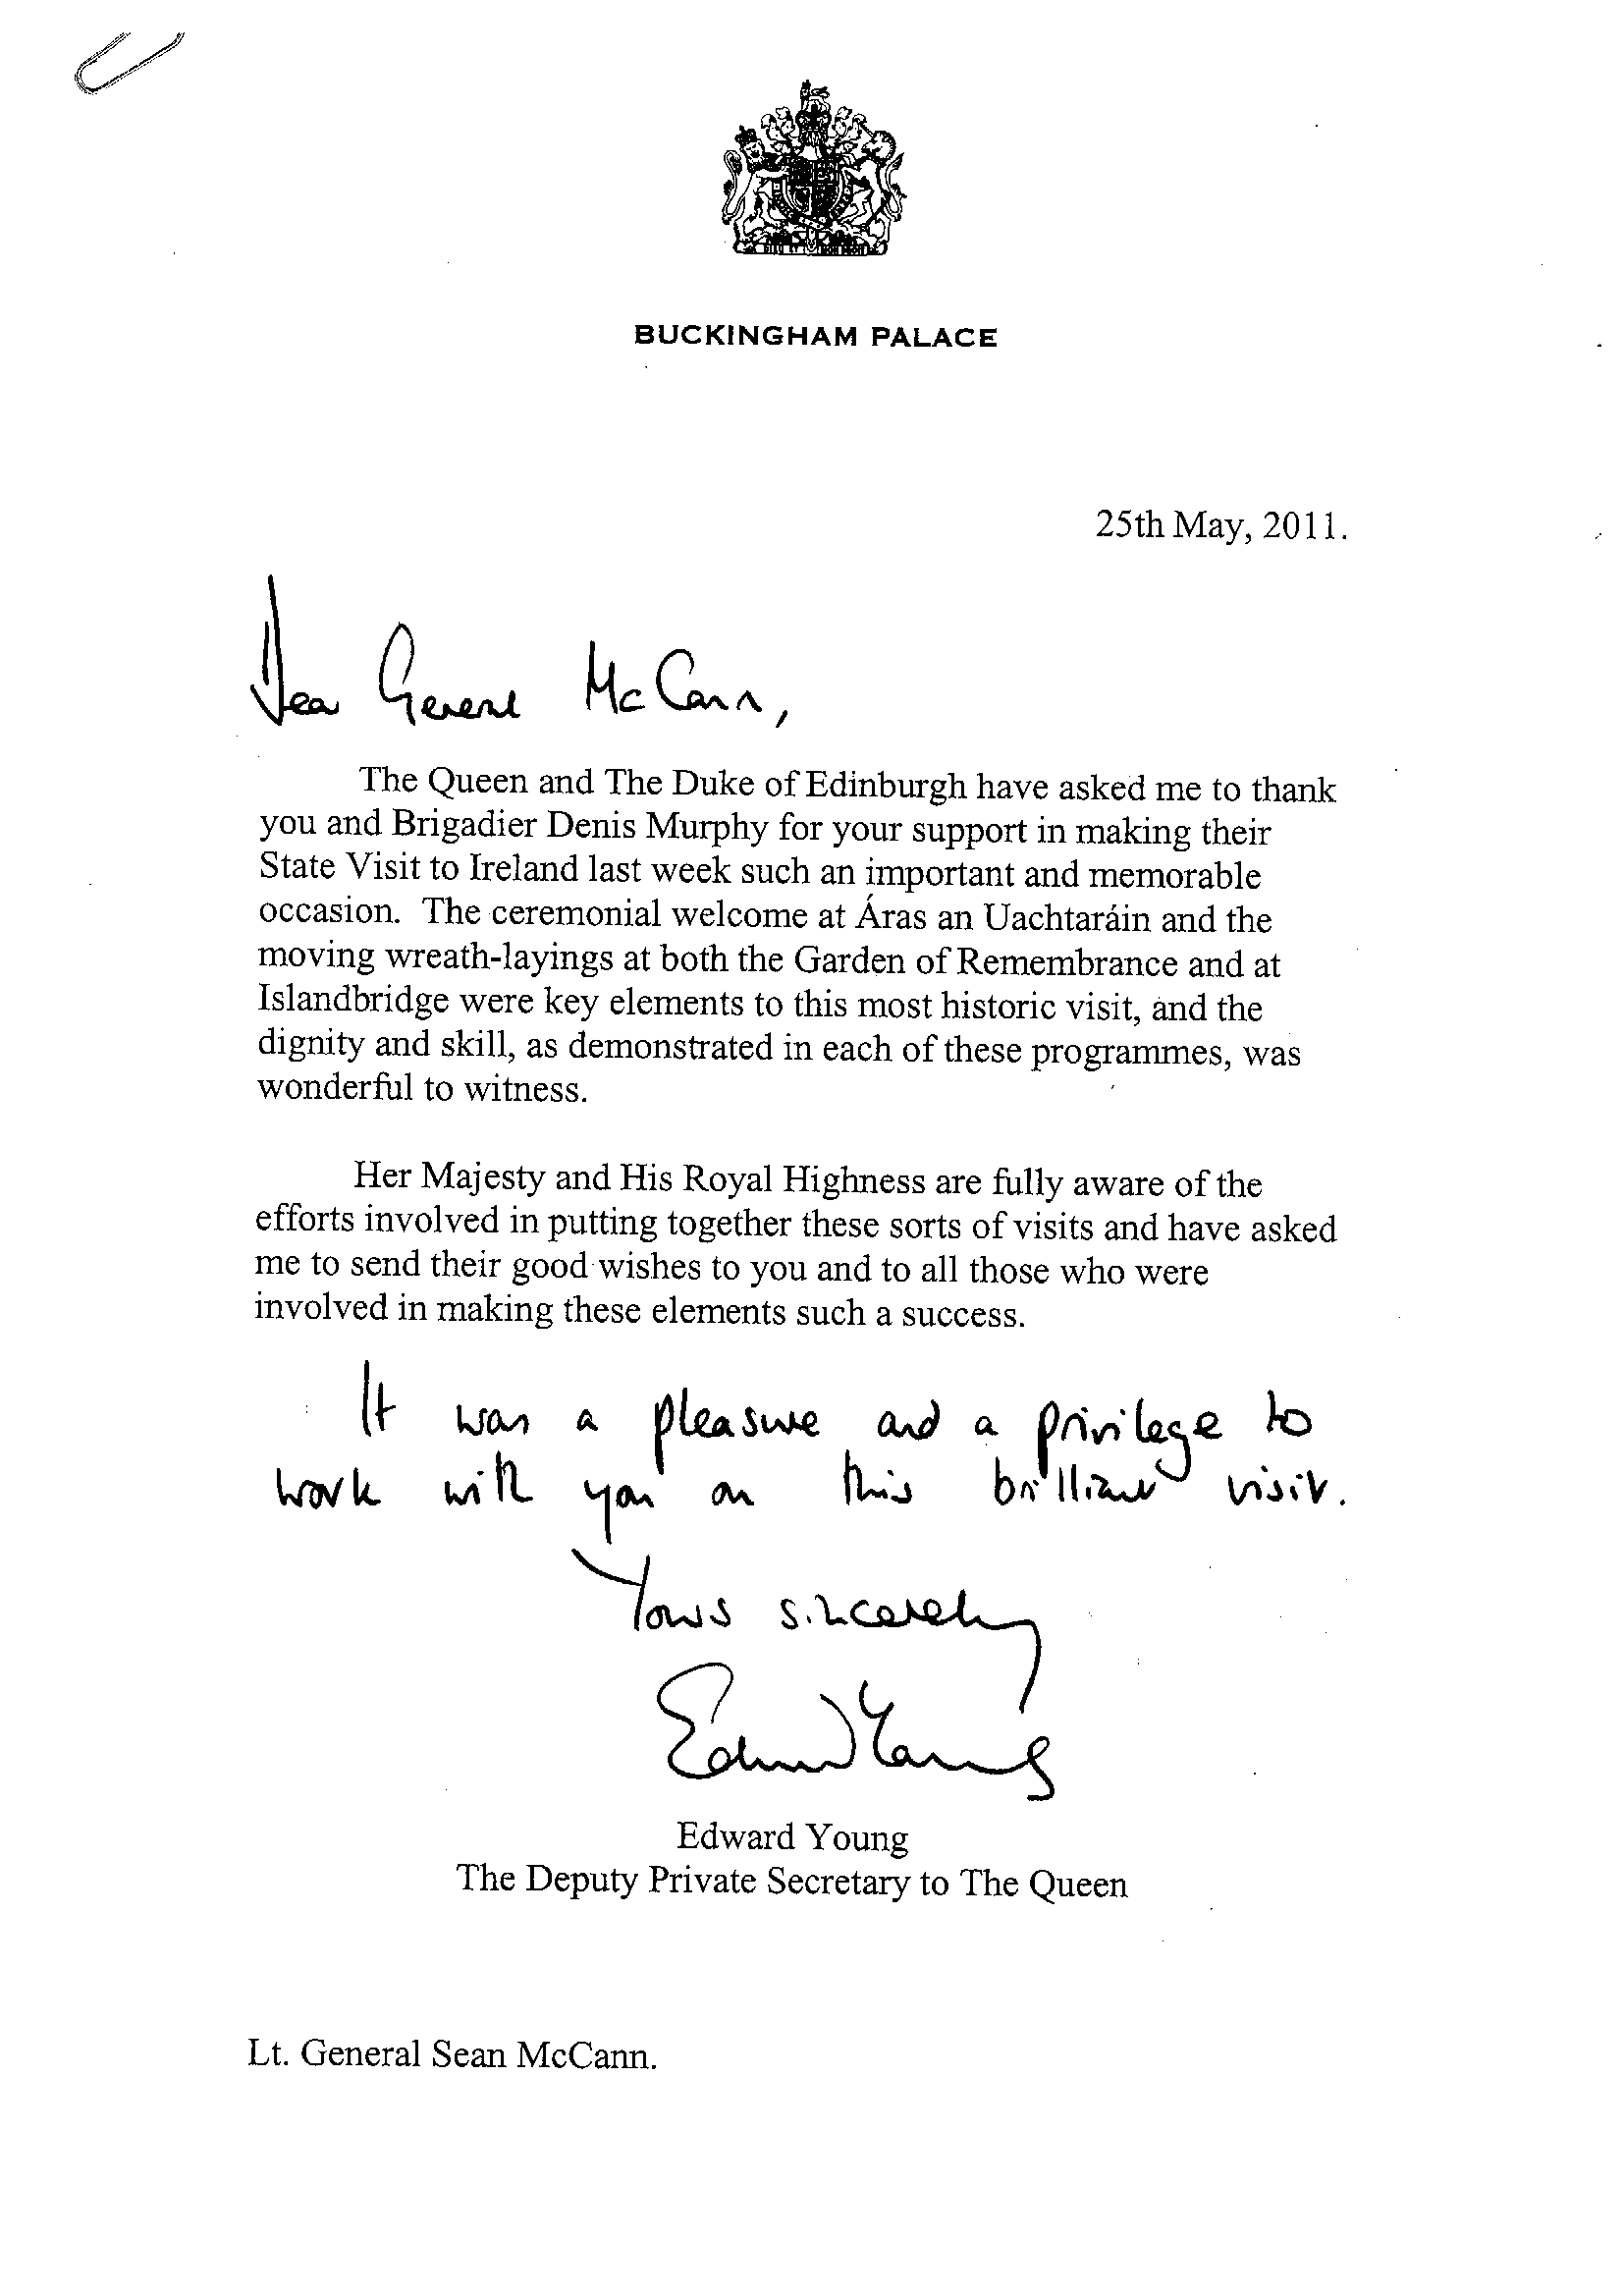 BUCKINGHAM PALACE
25th May, 2011.
Dear General McCann,
The Queen and The Duke of Edinburgh have asked me to thank
you and Brigadier Denis Murphy for your support in making their
State Visit to Ireland last week such an important and memorable
occasion. The ceremonial welcome at Áras an Uachtaráin and the
moving wreath-layings at both the Garden of Remembrance and at
Islandbridge were key elements to this most historic visit, and the
dignity and skill, as demonstrated in each of these programmes, was
wonderful to witness.
Her Majesty and His Royal Highness are fully aware of the
efforts involved in putting together these sorts of visits and have asked
me to send their good wishes to you and to all those who were
involved in making these elements such a success.
It was a pleasure and a privilege to
work with you on this brilliant visit.
Yours sincerely
Edward Young
Edward Young
The Deputy Private Secretary to The Queen
Lt. General Sean McCann.